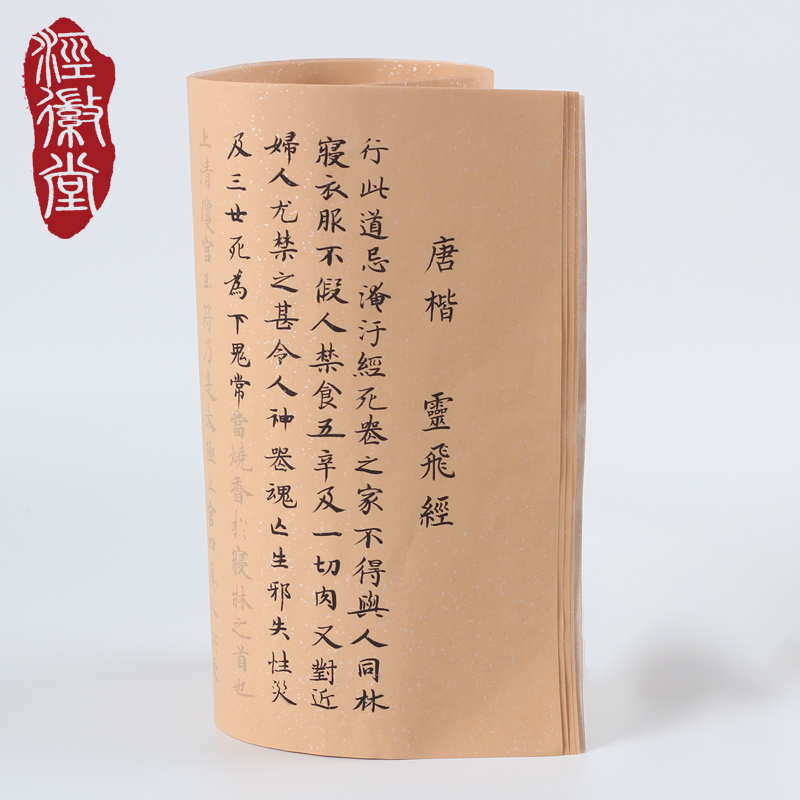 涇徽堂
唐楷 靈飛經
行此道忌淹汙經死喪之家不得與人同牀
寢衣服不假人禁食五辛及一切肉又對近
婦人尤禁之甚令人神喪魂亡生邪失性災
及三世死為下鬼常當燒香於寢牀之首也
上清瓊宮玉符乃是太極上宮四真人